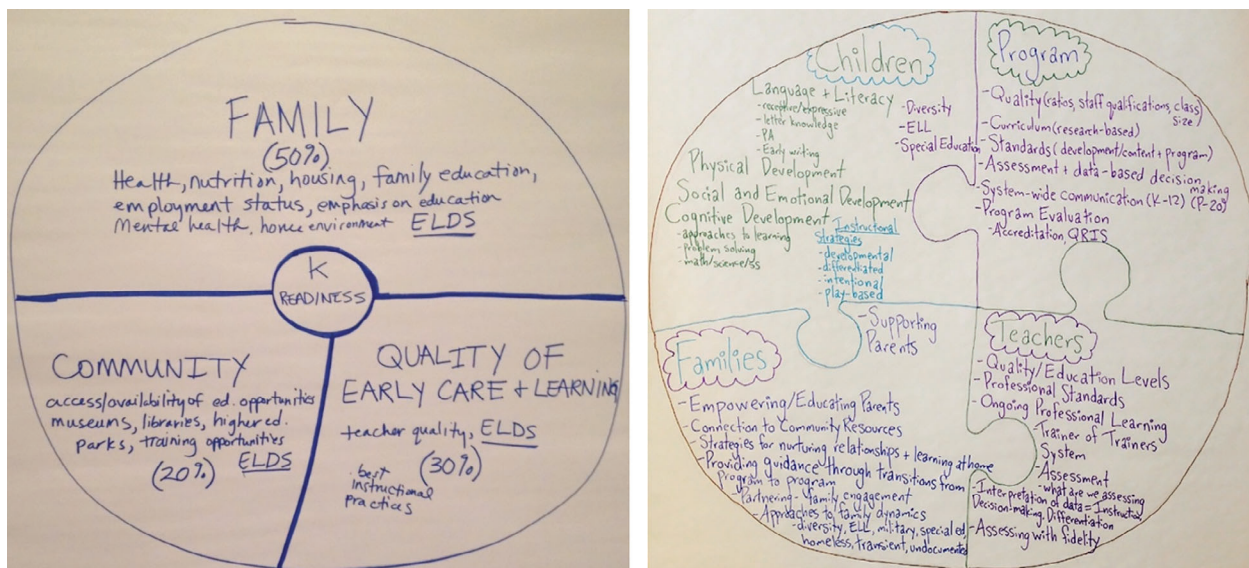 FAMILY
(50%)
Health, nutrition, housing, family education,
employment status, emphasis on education
Mental health, home environment ELDS
K
READINESS
COMMUNITY
access/availability of ed. opportunities
museums, libraries, higher ed.
parks, training opportunities
(20%) ELDS
QUALITY OF
EARLY CARE + LEARNING
teacher quality, ELDS
(30%)
. best
instructional
practices
Children
Language + Literacy
- receptive/expressive
- letter knowledge
- PA
- Early writing
- Diversity
- ELL
- Special Education
Physical Development
Social and Emotional Development
Cognitive Development
- approaches to learning
- problem solving
- math/science/ss
Instructional
Strategies
- developmental
- differentiated
- intentional
- play-based
Program
- Quality (ratios, staff qualifications, class
size)
- Curriculum (research-based)
- Standards (development/content + program)
- Assessment + data-based decision
making
- System-wide communication (K-12) (P-20)
- Program Evaluation
- Accreditation, QRIS
Families
- Supporting
Parents
- Empowering/Educating Parents
- Connection to Community Resources
- Strategies for nurturing relationships + learning at home
- Providing guidance through transitions from
Program to program
- Partnering - family engagement
- Approaches to family dynamics
- diversity, ELL, military, special ed,
homeless, transient, undocumented
Teachers
- Quality/Education Levels
- Professional Standards
- Ongoing Professional Learning
- Trainer of Trainers
System
- Assessment
- what are we assessing
- Interpretation of data = Instruction,
Decision-making, Differentiation
- Assessing with fidelity